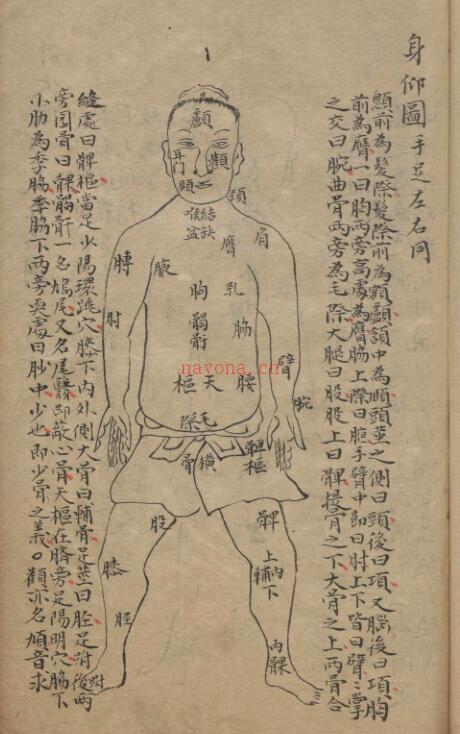 身仰圖 手足左右同
顖前為髮際髮際前為額顱頷中為頤頭莖之側曰頸後曰項又腦後曰項胸
前為膺一曰胸兩旁高處為膺脇上際曰腋手臂中節曰肘上下皆曰臂〻掌
之交曰腕曲骨兩旁為毛際大腿曰股股上曰髀揵骨之下大骨之上兩骨合
顱
顴
耳門
頤
頸
結喉
缺盆
肩
膺
膊
腋
胸
乳
肘
𩩲骬
脇
臂
腕
天樞
腰
毛際
橫骨
髀樞
股
髀
膝
上內下輔
脛
內髁
跗
縫處曰髀樞當足少陽環跳穴膝下內外側大骨曰輔骨足莖曰脛足跗後兩
旁圓骨曰髁𩩲骬一名鳩尾又名尾翳即蔽心骨天樞在臍旁是陽明穴脇下
小肋為季脇季脇下兩旁耎處曰䏚中少也即少骨之義○顴亦名頄音求
nayona.cn